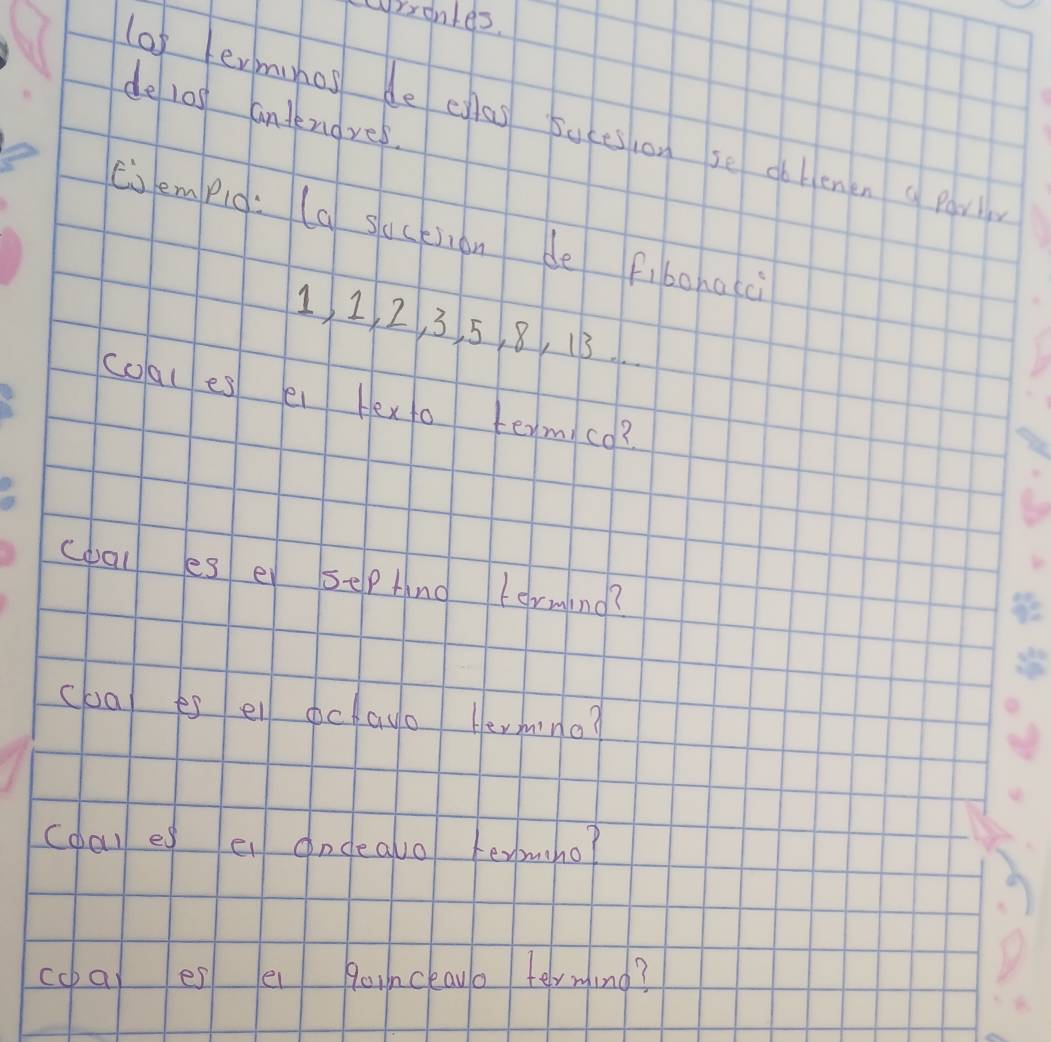 currentes.
los terminos de estas sucesion se obtienen a partir
de los anteriores.
Ejemplo: la sucesion de fibonacci
1, 1, 2, 3, 5, 8, 13...
coal es el texto termico?
coal es el septino termino?
coal es el octavo termino?
coal es el onceavo termino?
coal es el qoinceavo termino?